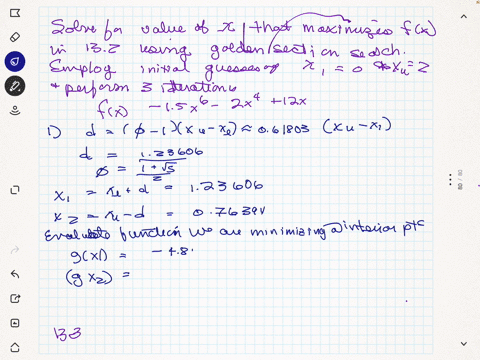 Solve for value of x that maximizes f(x)
in 13.2 using golden section search.
Employ initial guesses of x_l = 0 & x_u = 2
& perform 3 iterations
f(x) -1.5x^6 - 2x^4 + 12x
1) d = (φ-1)(xu-xe) ≈ 0.61803 (xu-x1)
d = 1.23606
φ = (1+√5)/2
x1 = xl + d = 1.23606
x2 = xu - d = 0.76394
Evaluate function we are minimizing @ interior pts
g(x1) = -4.8
(g x2) =
13.3
80 / 80